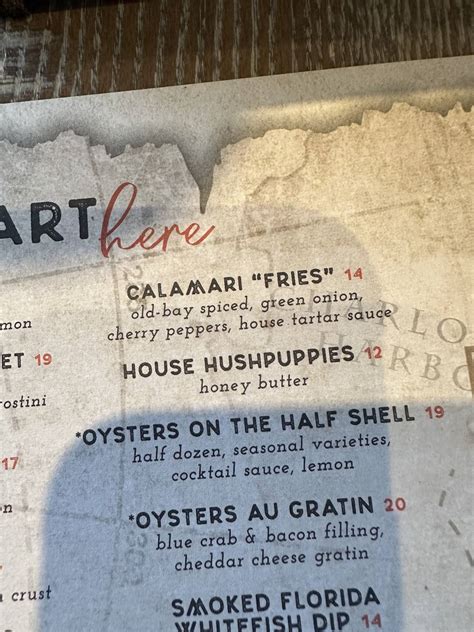 ART here
CALAMARI "FRIES" 14
old-bay spiced, green onion,
cherry peppers, house tartar sauce
HOUSE HUSHPUPPIES 12
honey butter
*OYSTERS ON THE HALF SHELL 19
half dozen, seasonal varieties,
cocktail sauce, lemon
*OYSTERS AU GRATIN 20
blue crab & bacon filling,
cheddar cheese gratin
SMOKED FLORIDA
WHITEFISH DIP 14
mon
ET 19
ostini
17
n
crust
ARLO
ARBO